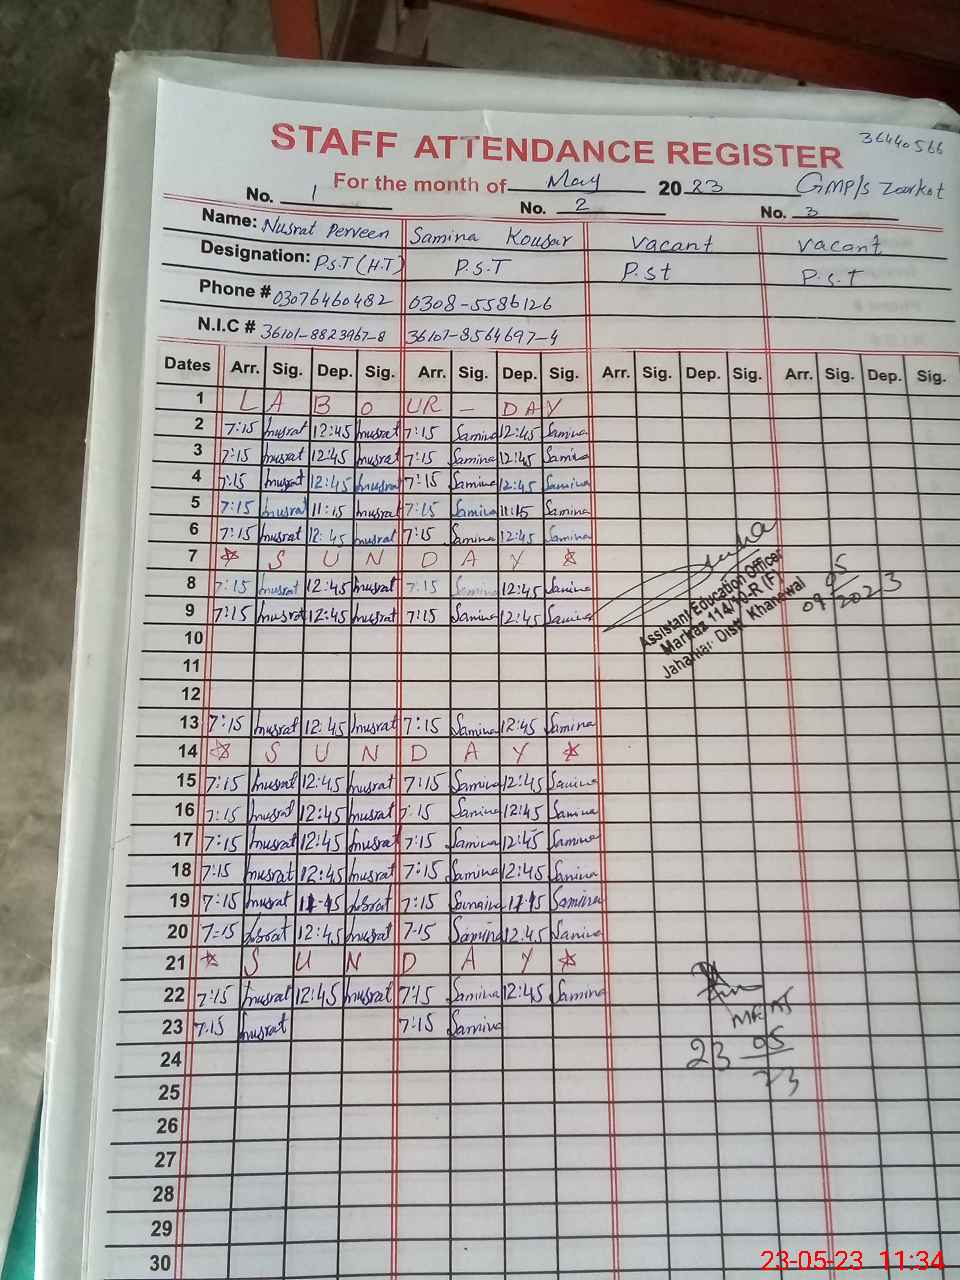 36440566
STAFF ATTENDANCE REGISTER
For the month of May 2023 GMP/s Zoorkot
No. 1 No. 2 No. 3
Name: Nusrat Perveen Samina Kousar vacant vacant
Designation: P.S.T (H.T) P.S.T P.st P.s.T
Phone # 03076460482 0308-5586126
N.I.C # 36101-8823967-8 36107-8564697-4
Dates Arr. Sig. Dep. Sig. Arr. Sig. Dep. Sig. Arr. Sig. Dep. Sig. Arr. Sig. Dep. Sig.
1 LABOUR - DAY
2 7:15 nusrat 12:45 nusrat 7:15 Samina 12:45 Samina
3 7:15 nusrat 12:45 nusrat 7:15 Samina 12:45 Samina
4 7:15 nusrat 12:45 nusrat 7:15 Samina 12:45 Samina
5 7:15 nusrat 11:15 nusrat 7:15 Samina 11:15 Samina
6 7:15 nusrat 12:45 nusrat 7:15 Samina 12:45 Samina
7 ☆ SUNDAY ☆
8 7:15 nusrat 12:45 nusrat 7:15 Samina 12:45 Samina
9 7:15 nusrat 12:45 nusrat 7:15 Samina 12:45 Samina
Assistant Education Officer
Markaz 114/10-R (F)
Jahanian Distt. Khanewal
09/05/2023
10
11
12
13 7:15 nusrat 12:45 nusrat 7:15 Samina 12:45 Samina
14 ☆ SUNDAY ☆
15 7:15 nusrat 12:45 nusrat 7:15 Samina 12:45 Samina
16 7:15 nusrat 12:45 nusrat 7:15 Samina 12:45 Samina
17 7:15 nusrat 12:45 nusrat 7:15 Samina 12:45 Samina
18 7:15 nusrat 12:45 nusrat 7:15 Samina 12:45 Samina
19 7:15 nusrat 7:15 Samina Samina
20 7:15 12:45 nusrat 7:15 Samina 12:45 Samina
21 ☆ SUNDAY ☆
22 7:15 nusrat 12:45 nusrat 7:15 Samina 12:45 Samina
23 7:15 nusrat 7:15 Samina
23 05
23
24
25
26
27
28
29
30
23-05-23 11:34